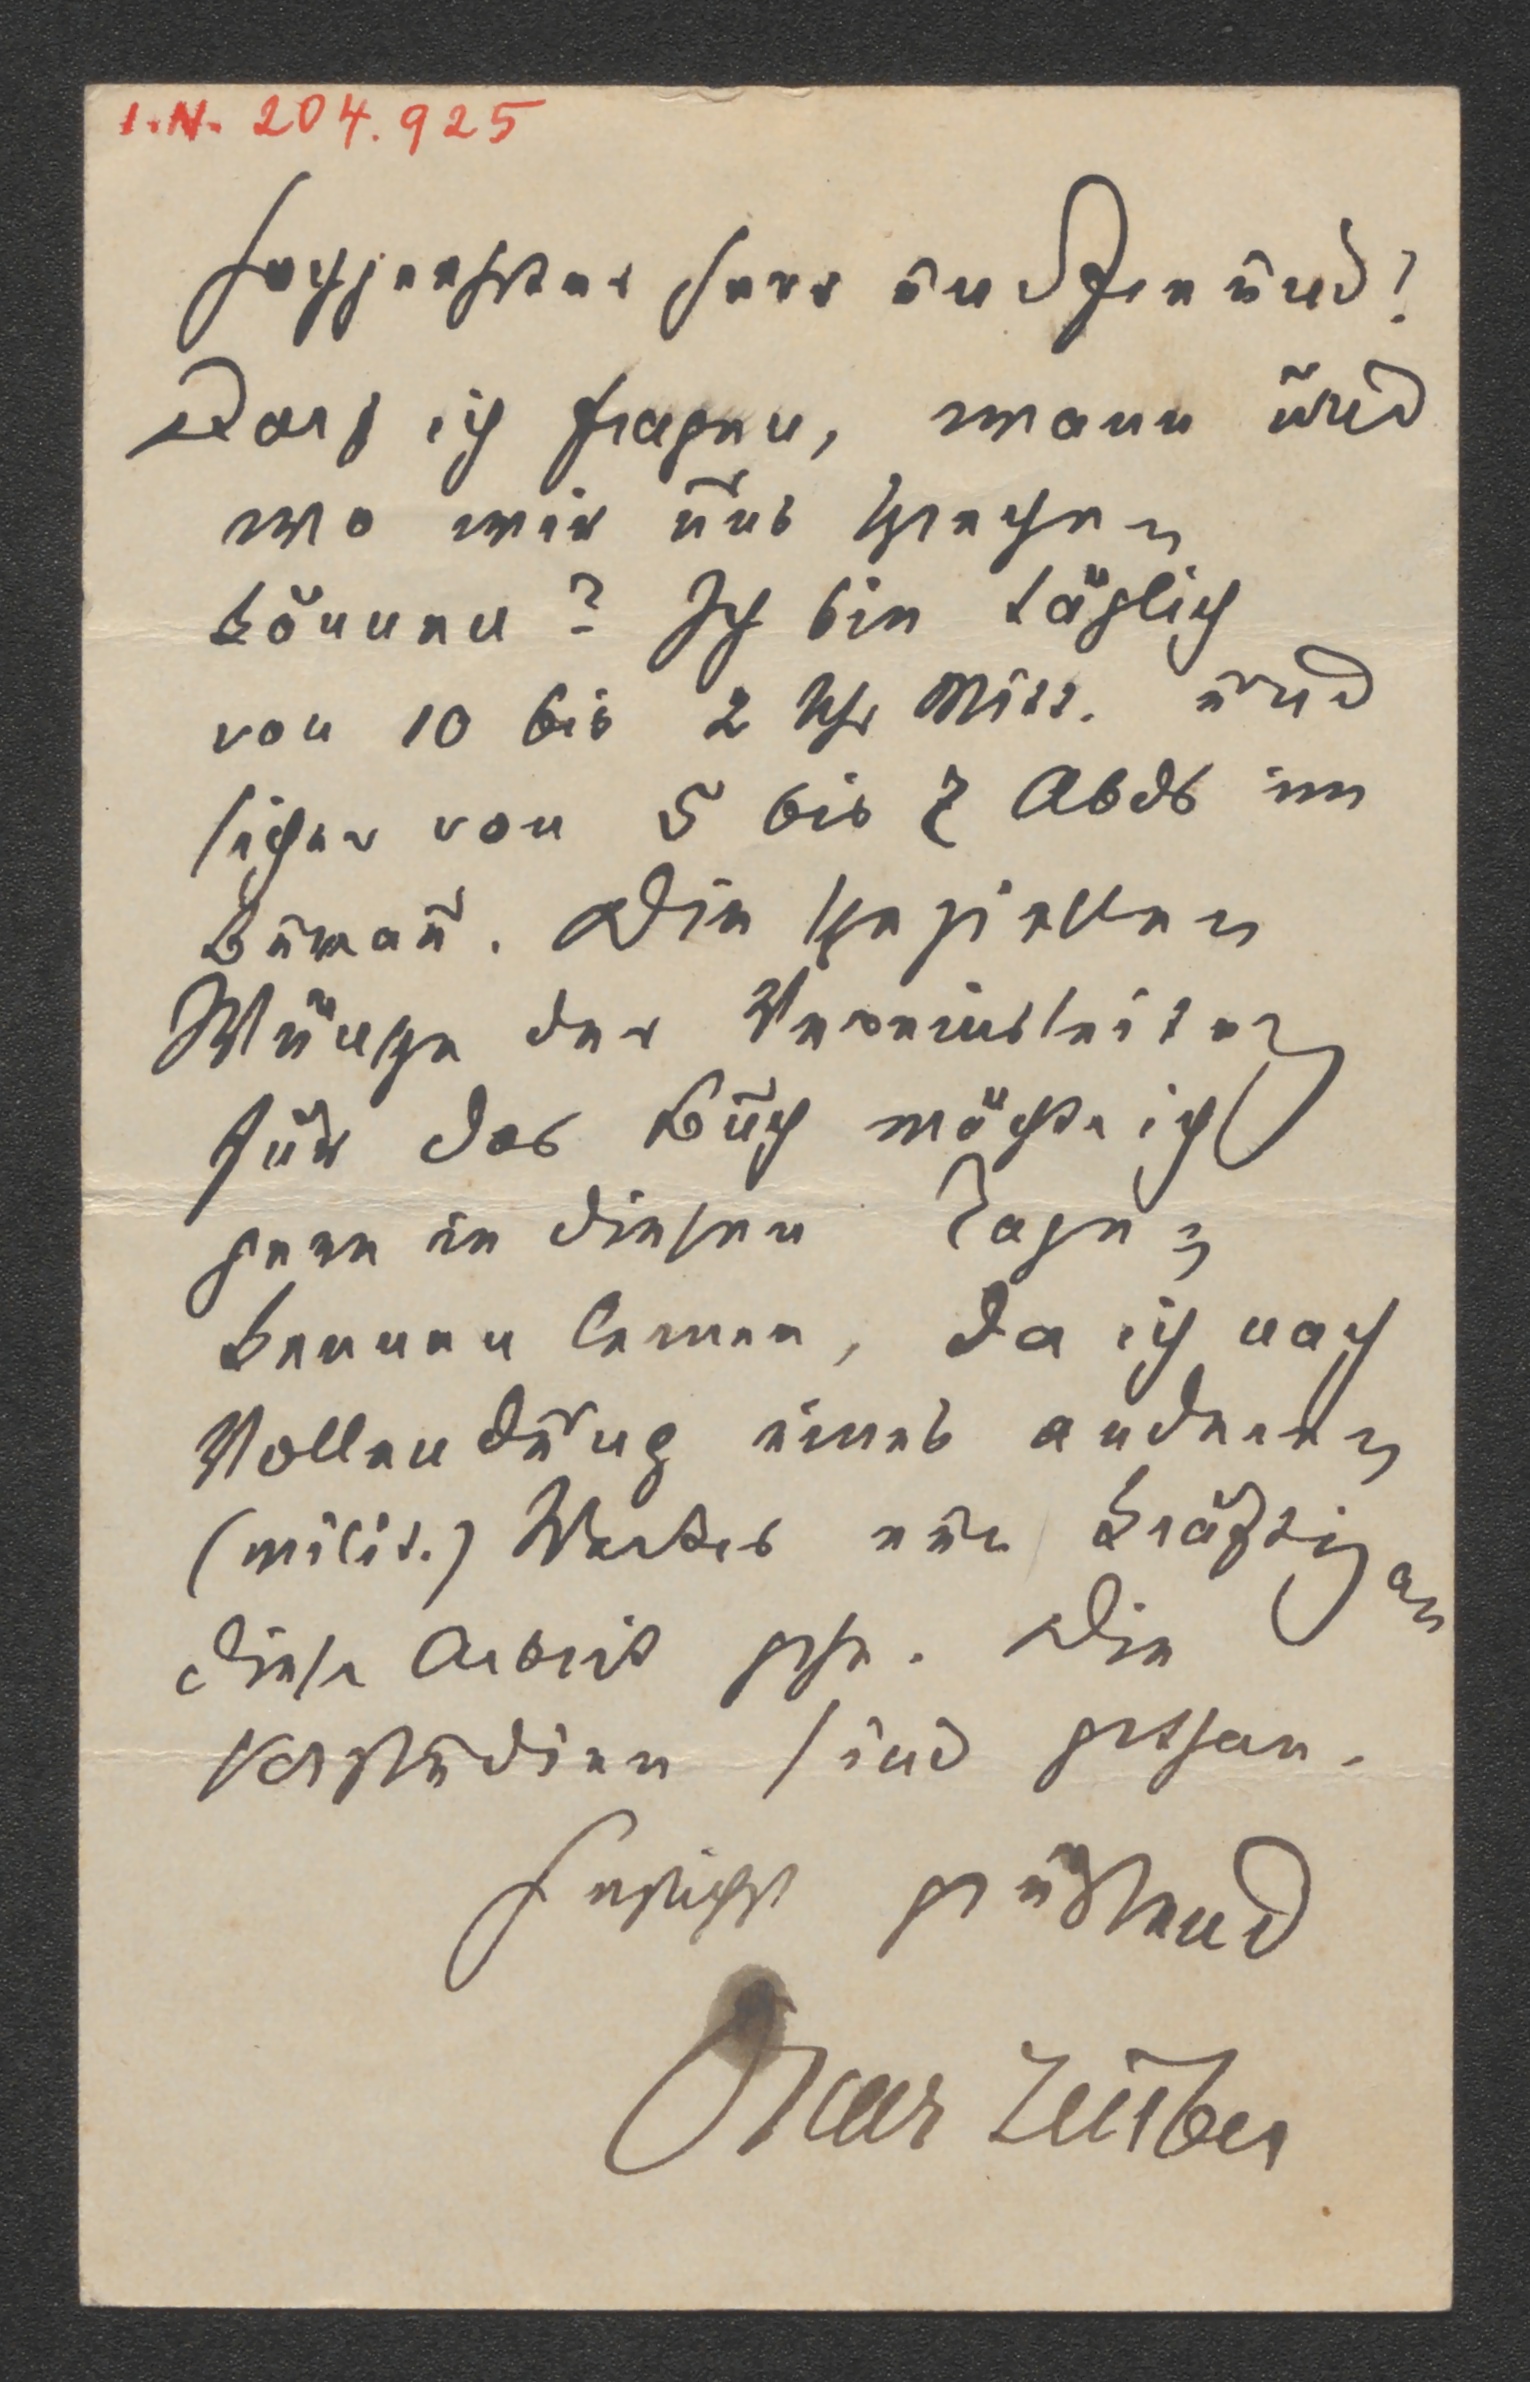 I.N. 204.925
Hochgeehrter Herr und Freund!
Darf ich fragen, wann und
wo wir uns sprechen
können? Ich bin täglich
von 10 bis 2 Uhr Mitt. und
sicher von 5 bis 7 Abds im
Bureau. Die speziellen
Wünsche der Vereinsleitung
für das Buch möchte ich
gern in diesen Tagen
kennen lernen, da ich nach
Vollendung eines anderen
(milit.) Werkes nun kräftig an
diese Arbeit gehe. Die
Vorstudien sind gethan.
Herzlichst grüßend
Oscar Teuber